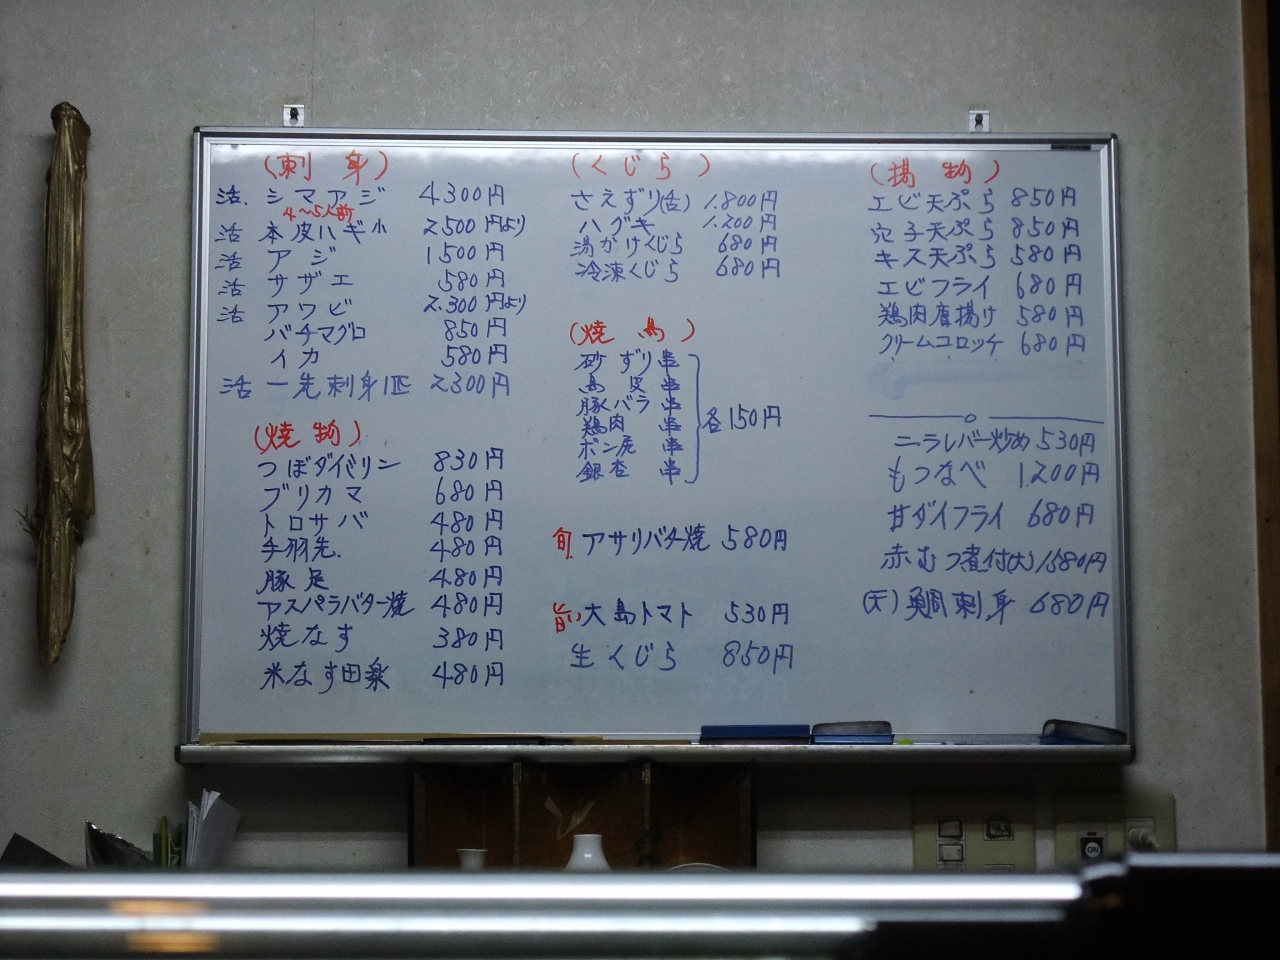 (刺身)
活. シマアジ 4300円
4〜5人前
活 本皮ハギ小 2.500円より
活 アジ 1500円
活 サザエ 580円
活 アワビ 2.300円より
バチマグロ 850円
イカ 580円
活 一先刺身1匹 2300円
(焼物)
つぼダイミリン 830円
ブリカマ 680円
トロサバ 480円
手羽先. 480円
豚足 480円
アスパラバター焼 480円
焼なす 380円
米なす田楽 480円
(くじら)
さえずり(舌) 1.800円
ハグキ 1.200円
湯がけくじら 680円
冷凍くじら 680円
(焼鳥)
砂ずり串
鳥皮串
豚バラ串
鶏肉串
ボン尻串
銀杏串
各150円
旬. アサリバター焼 580円
旨い 大島トマト 530円
生くじら 850円
(揚物)
エビ天ぷら 850円
穴子天ぷら 850円
キス天ぷら 580円
エビフライ 680円
鶏肉唐揚げ 580円
クリームコロッケ 680円
ニラレバー炒め 530円
もつなべ 1.200円
甘ダイフライ 680円
赤むつ煮付(大) 1580円
(天) 鯛刺身 680円
ON